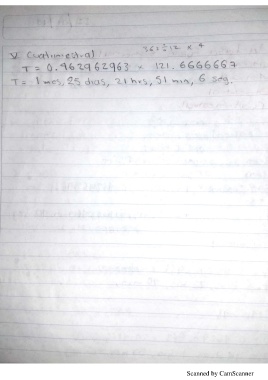 365÷12 x 4
V Cuatrimestral
T = 0.462962963 x 121.6666667
T = 1 mes, 25 dias, 21 hrs, 51 min, 6 seg.
Scanned by CamScanner